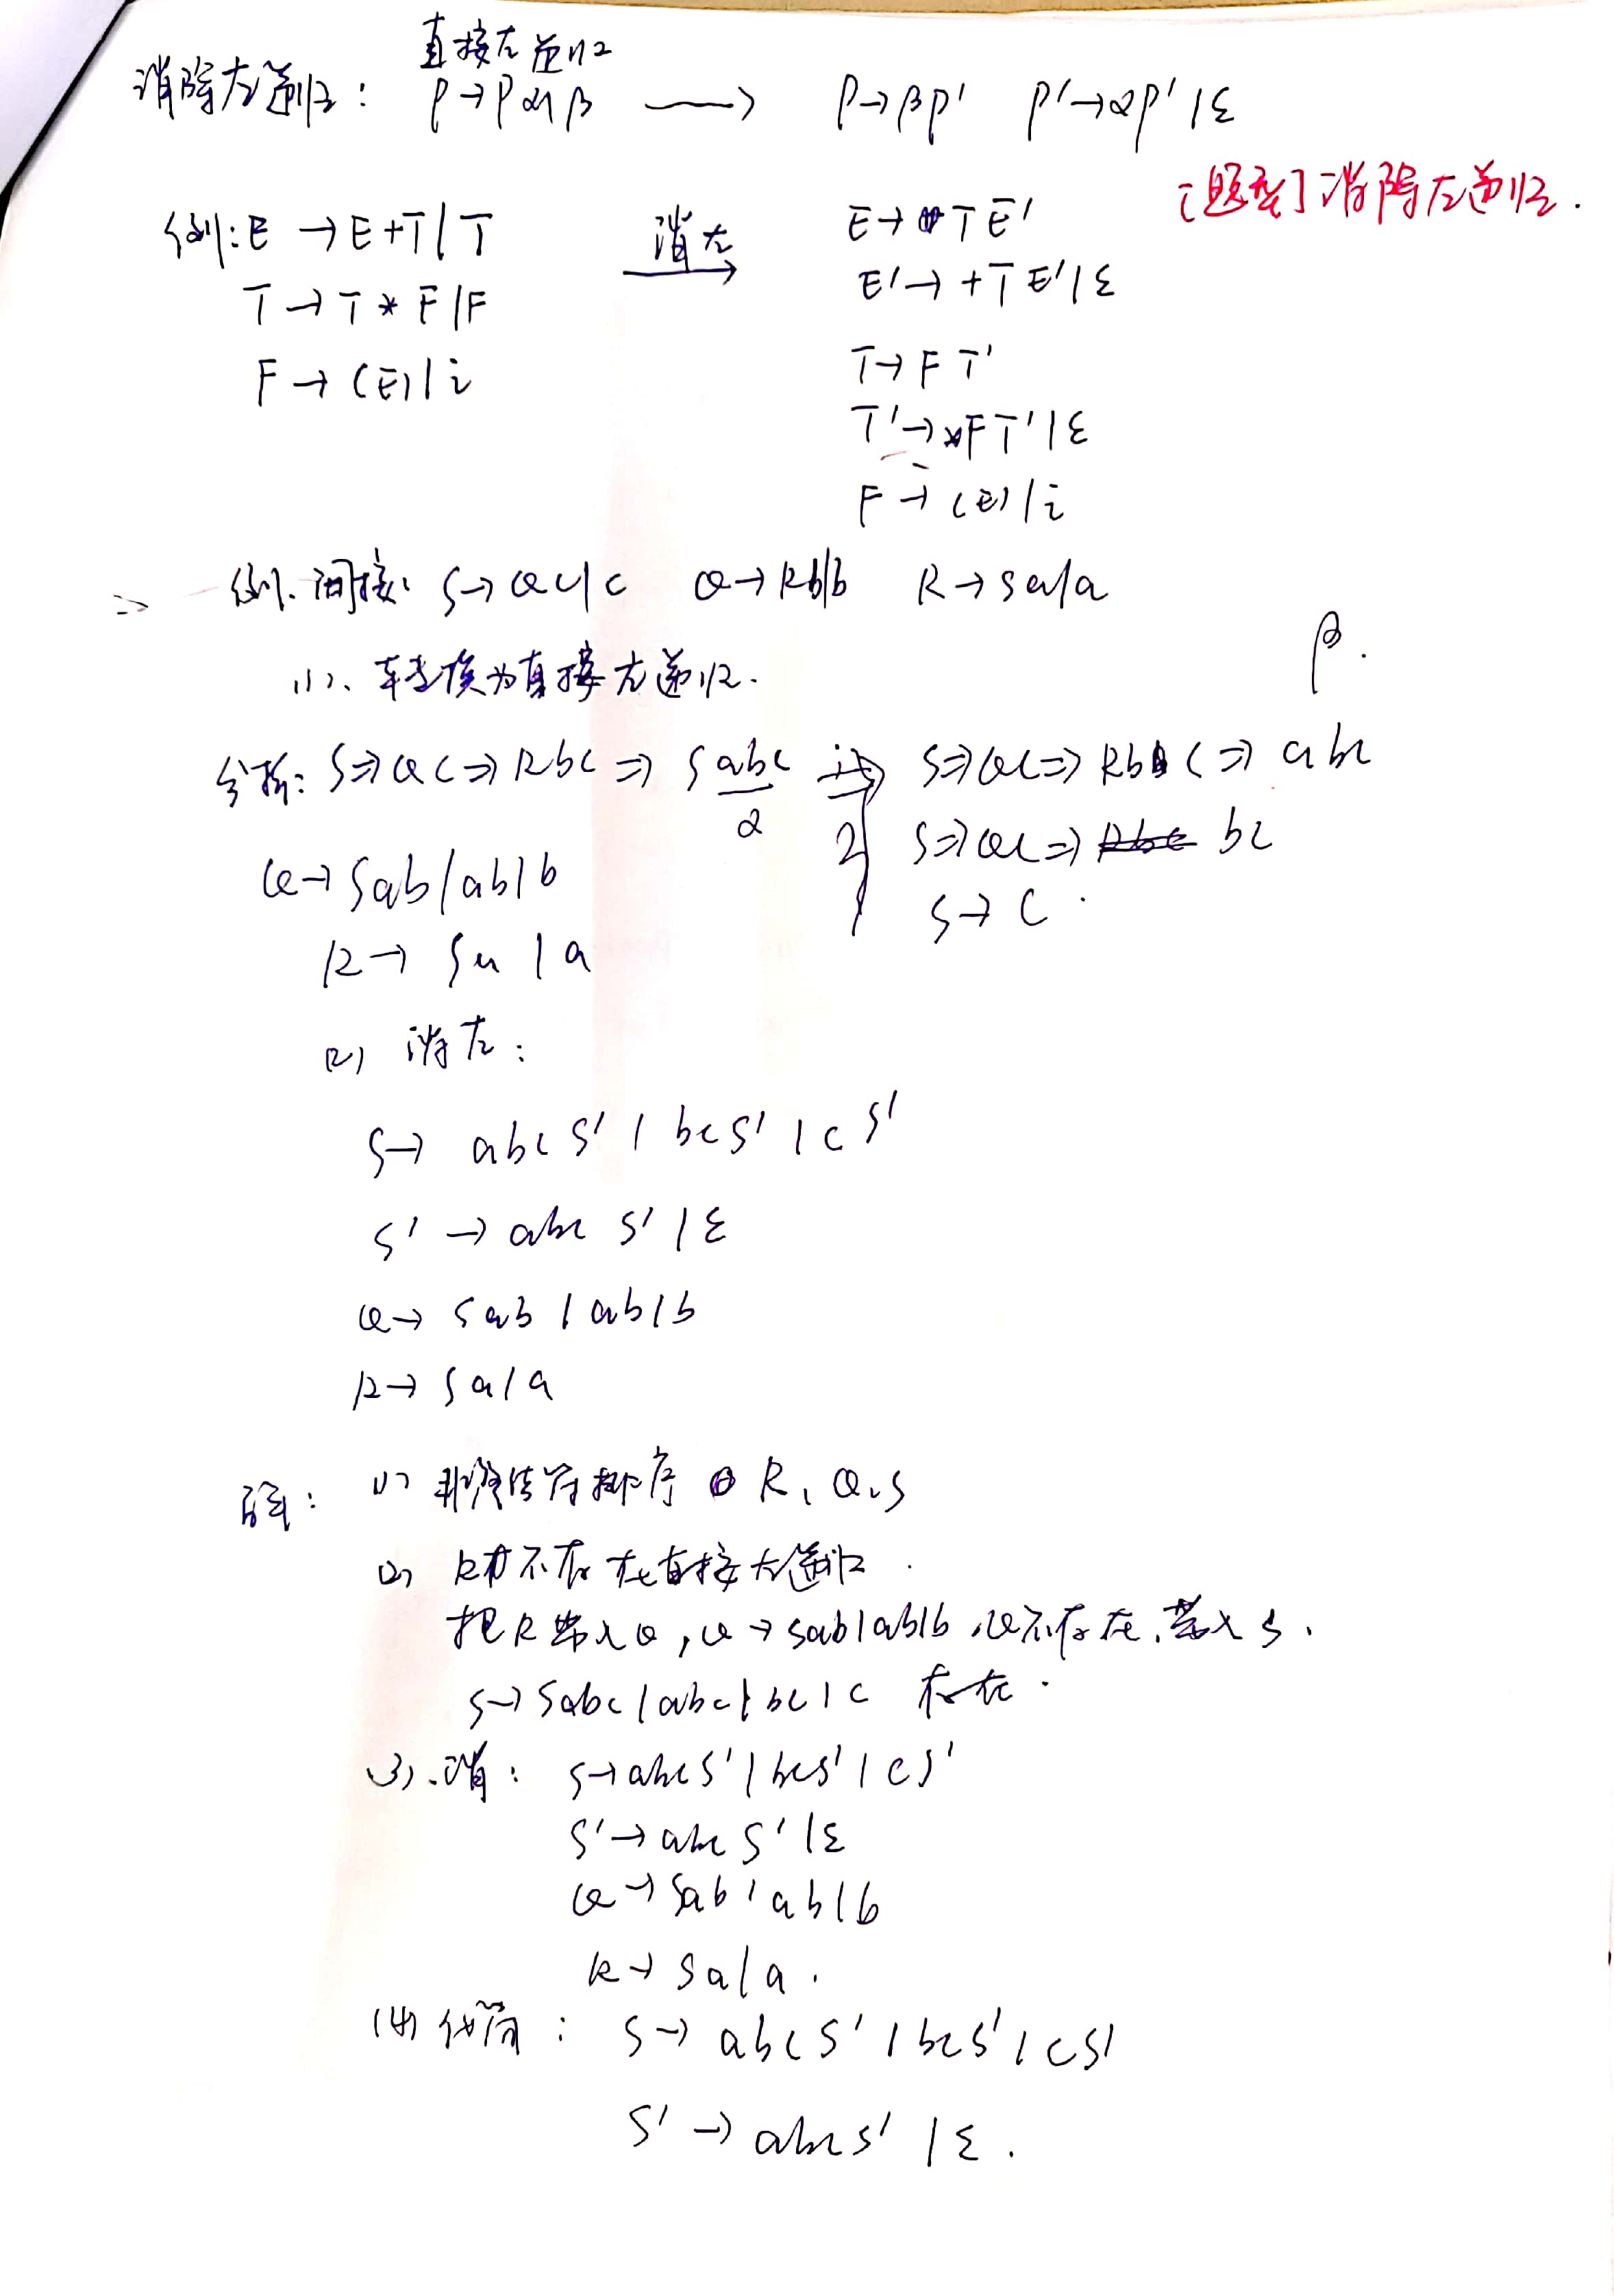 直接左递归
消除左递归： P→Pα|β ⟶ P→βP' P'→αP'|ε
[题型]消除左递归.
例：E→E+T|T 消左 E→TE'
E'→+TE'|ε
T→T*F|F
F→(E)|i
T→FT'
T'→*FT'|ε
F→(E)|i
=> 例. 间接: S→Qc|c Q→Rb|b R→Sa|a
β.
(1)、转换为直接左递归.
分析: S⇒Qc⇒Rbc⇒Sabc S⇒Qc⇒Rbc⇒abc
α
S⇒Qc⇒ bc
Q→Sab|ab|b
S→c.
R→Sa|a
(2) 消左：
S→ abcS'|bcS'|cS'
S'→abcS'|ε
Q→Sab|ab|b
R→Sa|a
(1) 非终结符排序 R、Q、S
(2) R不存在直接左递归.
把R带入Q，Q→Sab|ab|b，Q不存在，带入S.
S→Sabc|abc|bc|c 存在.
(3).消：S→abcS'|bcS'|cS'
S'→abcS'|ε
Q→Sab|ab|b
R→Sa|a.
(4)化简：S→abcS'|bcS'|cS'
S'→abcS'|ε.